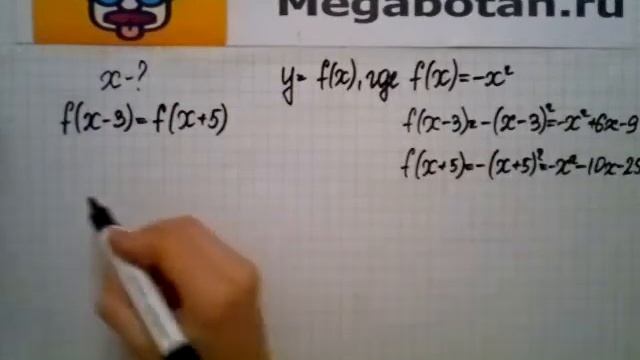 Megabotan.ru
x-? y= f(x), где f(x)=-x²
f(x-3)=f(x+5) f(x-3)=-(x-3)²=-x²+6x-9
f(x+5)=-(x+5)²=-x²-10x-25